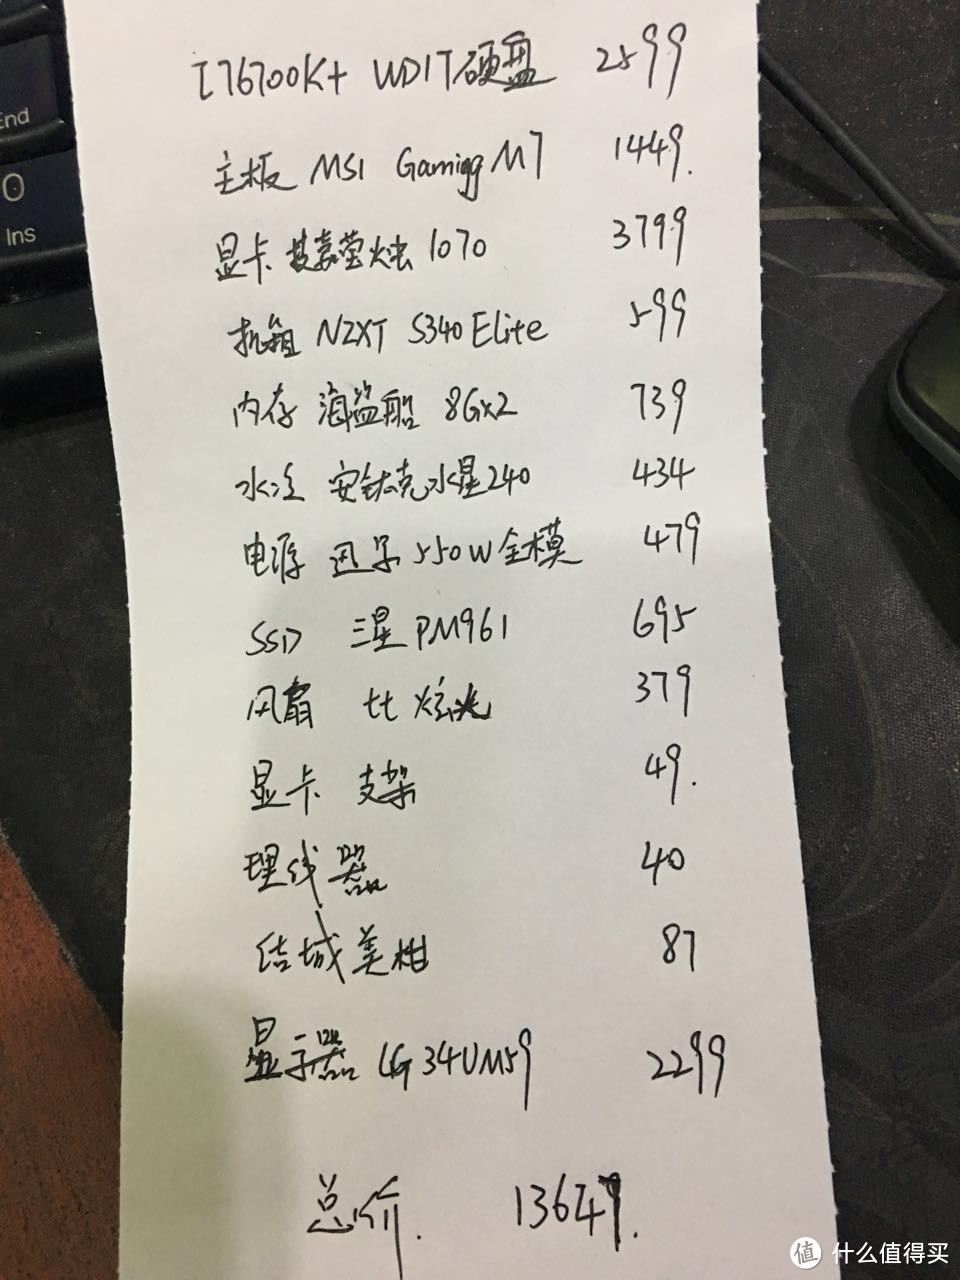 End
0
Ins
I76700K+ WD1T硬盘 2599
主板 MSI Gaming M7 1449.
显卡 技嘉萤火虫 1070 3799
机箱 NZXT S340 Elite 599
内存 海盗船 8G×2 739
水冷 安钛克水星240 434
电源 迅景550W全模 479
SSD 三星PM961 695
风扇 tt 炫光 379
显卡 支架 49.
理线器 40
结城美柑 87
显示器 LG 34UM59 2299
总价. 13647.
值 什么值得买